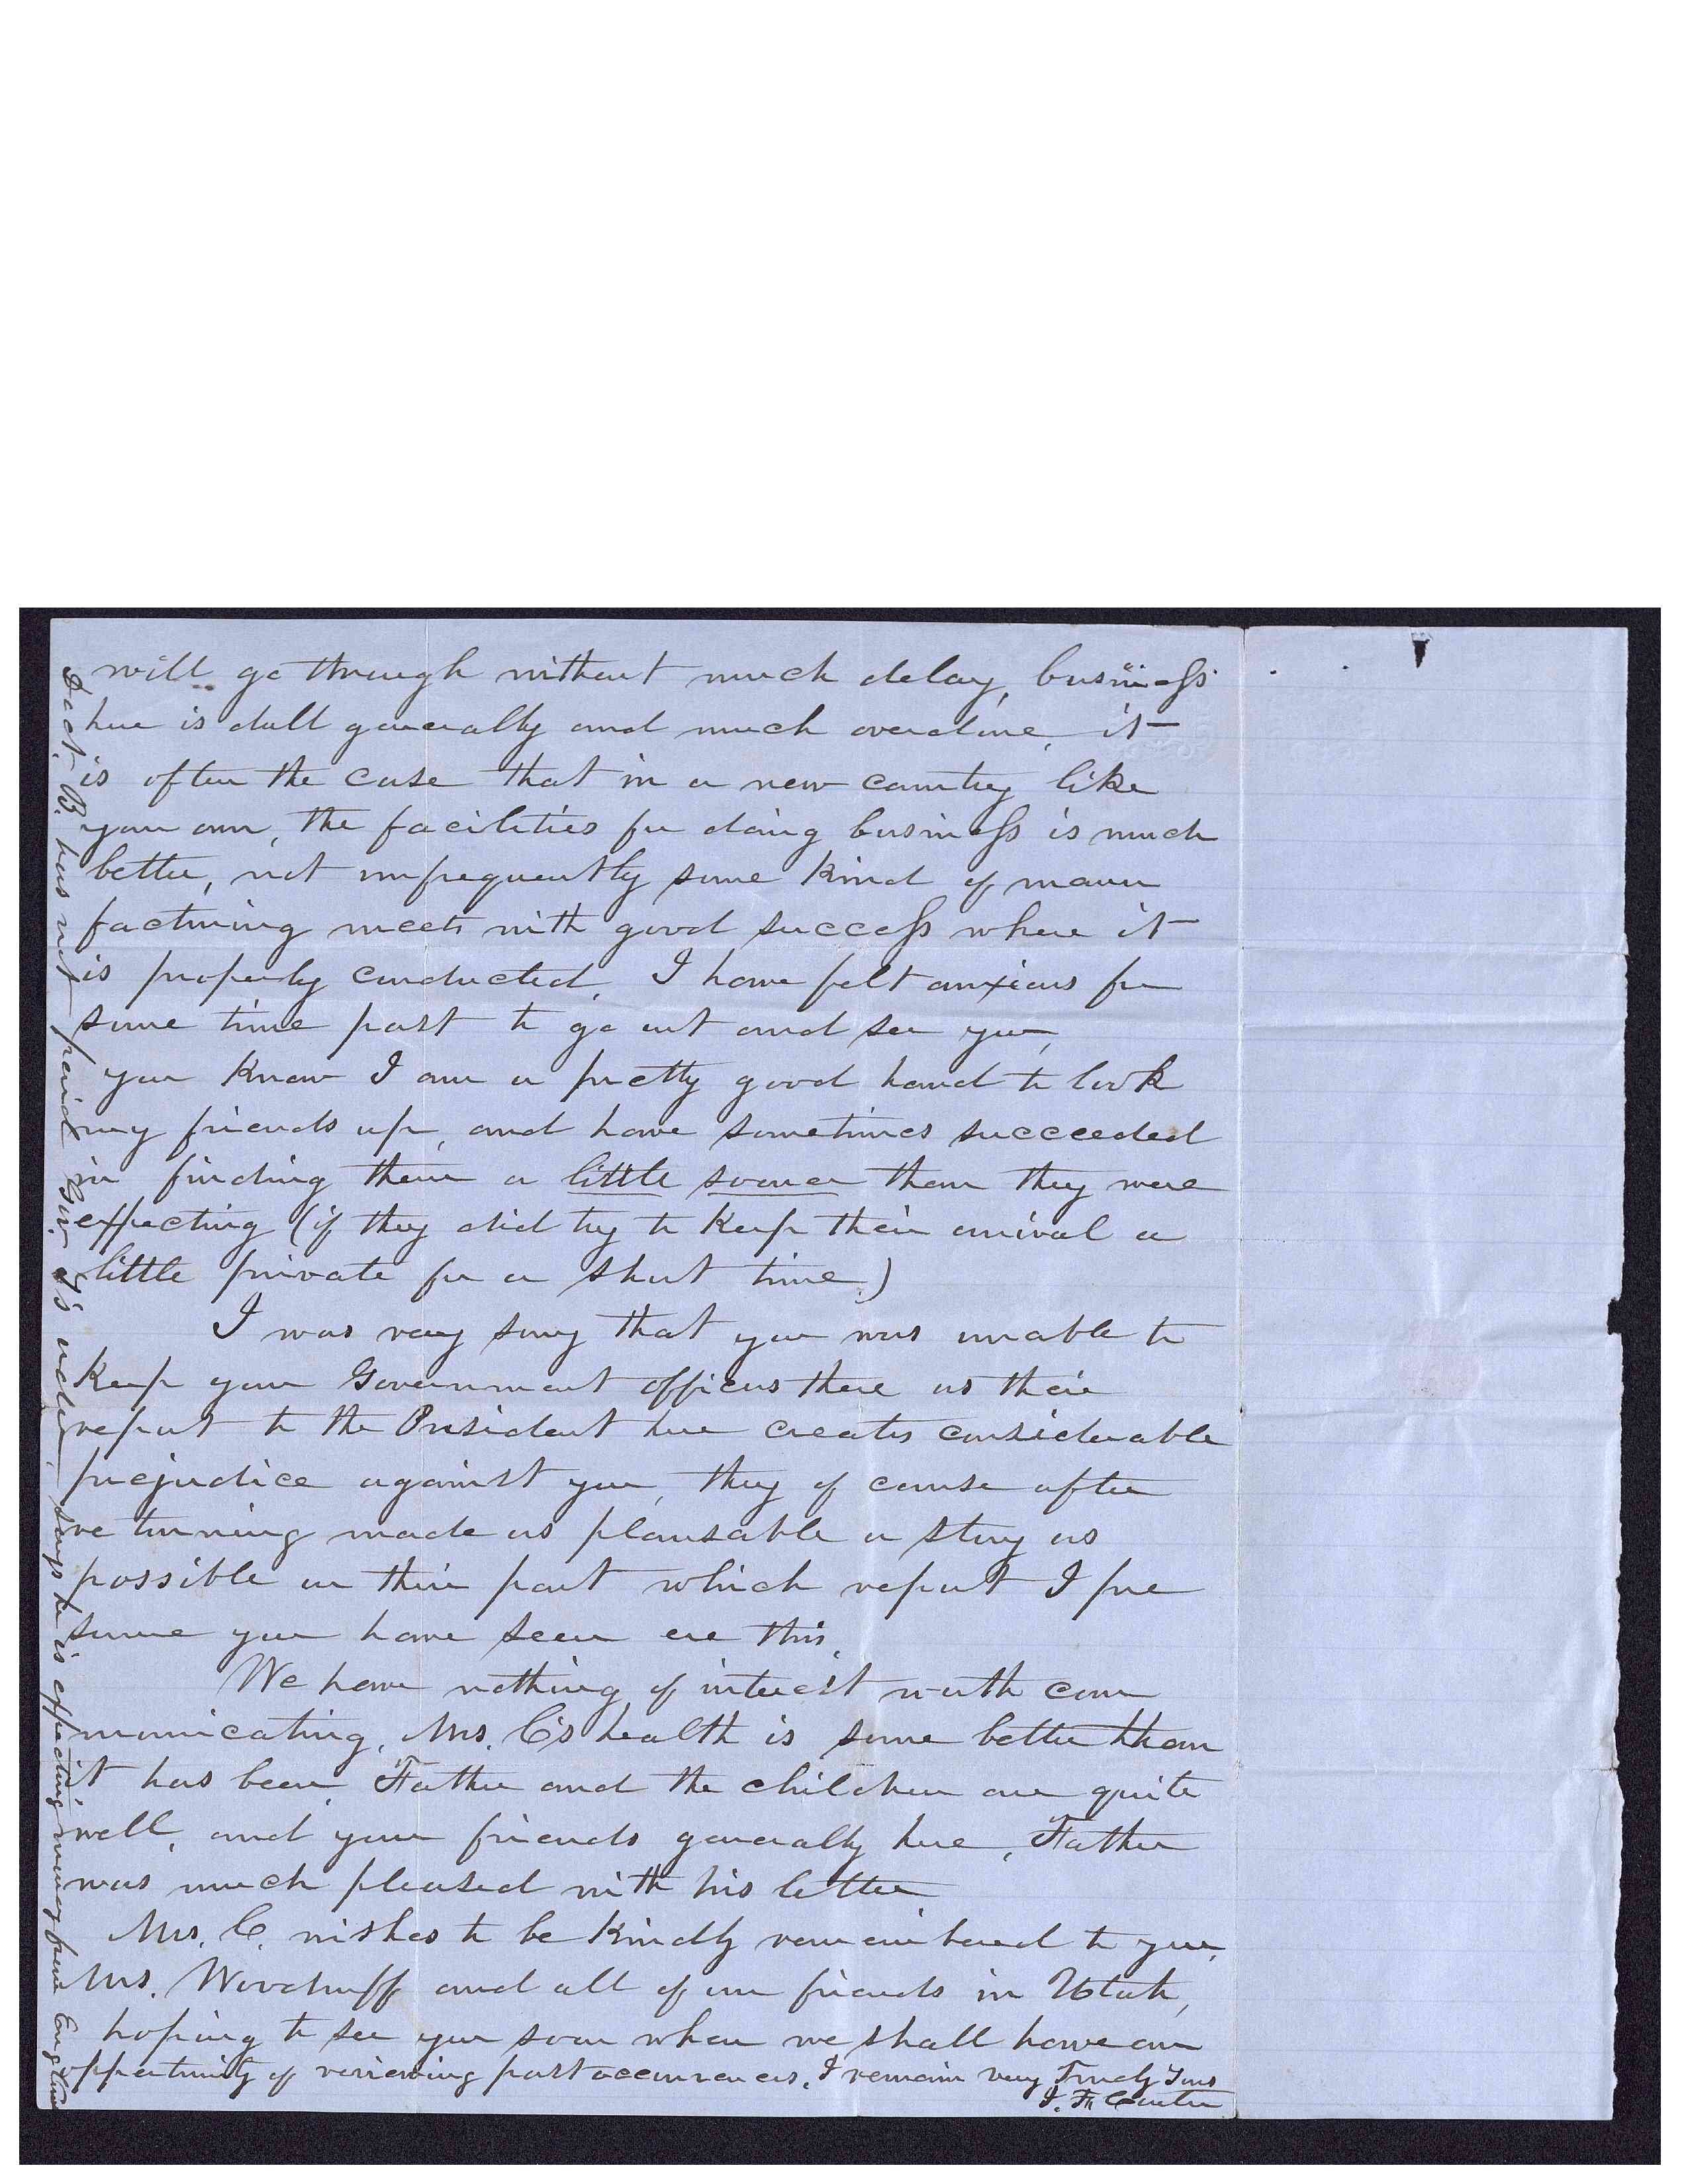 will go through without much delay, business
here is dull generally and much overdone, it
is often the case that in a new country like
your own, the facilities for doing business is much
better, not unfrequently some kind of manu
facturing meets with good success where it
is properly conducted, I have felt anxious for
some time past to go out and see you,
you know I am a pretty good hand to look
my friends up, and have sometimes succeeded
in finding them a little sooner than they were
expecting (if they did try to keep their arrival a
little private for a short time)
I was very sorry that you was unable to
keep your Government officers there as their
report to the President here creates considerable
prejudice against you, they of course after
returning made as plausable a story as
possible on their part which report I pre
sume you have seen ere this.
We have nothing of interest worth com
municating, Mrs. C's health is some better than
it has been, Father and the children are quite
well, and your friends generally here, Father
was much pleased with his letter
Mrs. C. wishes to be kindly remembered to you,
Mrs. Woodruff and all of our friends in Utah,
hoping to see you soon when we shall have an
oppertunity of reviewing past occurrences, I remain very Truly Yours
I. F. Carter
Doct. B. has not paid Gov. Y's order, says he is expecting money from England